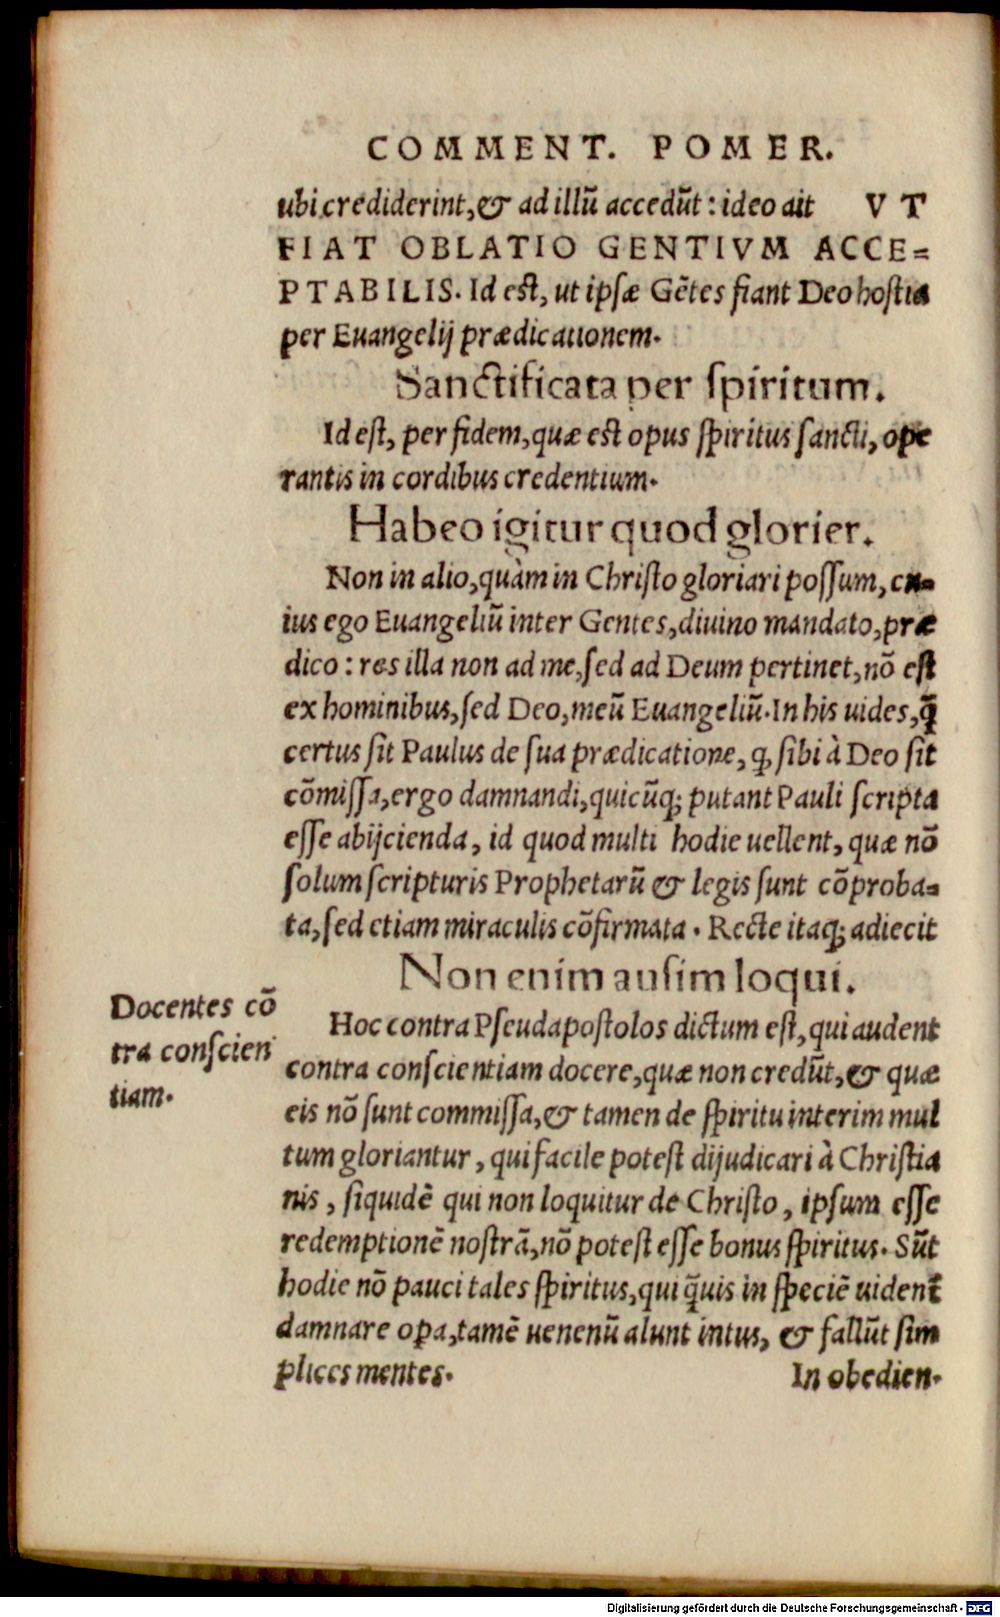 COMMENT. POMER.
ubi crediderint, & ad illũ accedũt: ideo ait VT
FIAT OBLATIO GENTIVM ACCE=
PTABILIS. Id est, ut ipsæ Gẽtes fiant Deo hostia
per Euangelij prædicationem.
Sanctificata per spiritum.
Id est, per fidem, quæ est opus spiritus sancti, ope
rantis in cordibus credentium.
Habeo igitur quod glorier.
Non in alio, quàm in Christo gloriari possum, cu=
ius ego Euangeliũ inter Gentes, diuino mandato, præ
dico: res illa non ad me, sed ad Deum pertinet, nõ est
ex hominibus, sed Deo, meũ Euangeliũ. In his uides, q̃
certus sit Paulus de sua prædicatione, ꝙ sibi à Deo sit
cõmissa, ergo damnandi, quicũqꝫ putant Pauli scripta
esse abijcienda, id quod multi hodie uellent, quæ nõ
solum scripturis Prophetarũ & legis sunt cõproba=
ta, sed etiam miraculis cõfirmata. Recte itaqꝫ adiecit
Non enim ausim loqui.
Docentes cõ
tra conscien
tiam.
Hoc contra Pseudapostolos dictum est, qui audent
contra conscientiam docere, quæ non credũt, & quæ
eis nõ sunt commissa, & tamen de spiritu interim mul
tum gloriantur, qui facile potest dijudicari à Christia
nis, siquidẽ qui non loquitur de Christo, ipsum esse
redemptionẽ nostrã, nõ potest esse bonus spiritus. Sũt
hodie nõ pauci tales spiritus, qui q̃uis in speciẽ uident̃
damnare opa, tamẽ uenenũ alunt intus, & fallũt sim
plices mentes.
In obedien.
Digitalisierung gefördert durch die Deutsche Forschungsgemeinschaft - DFG